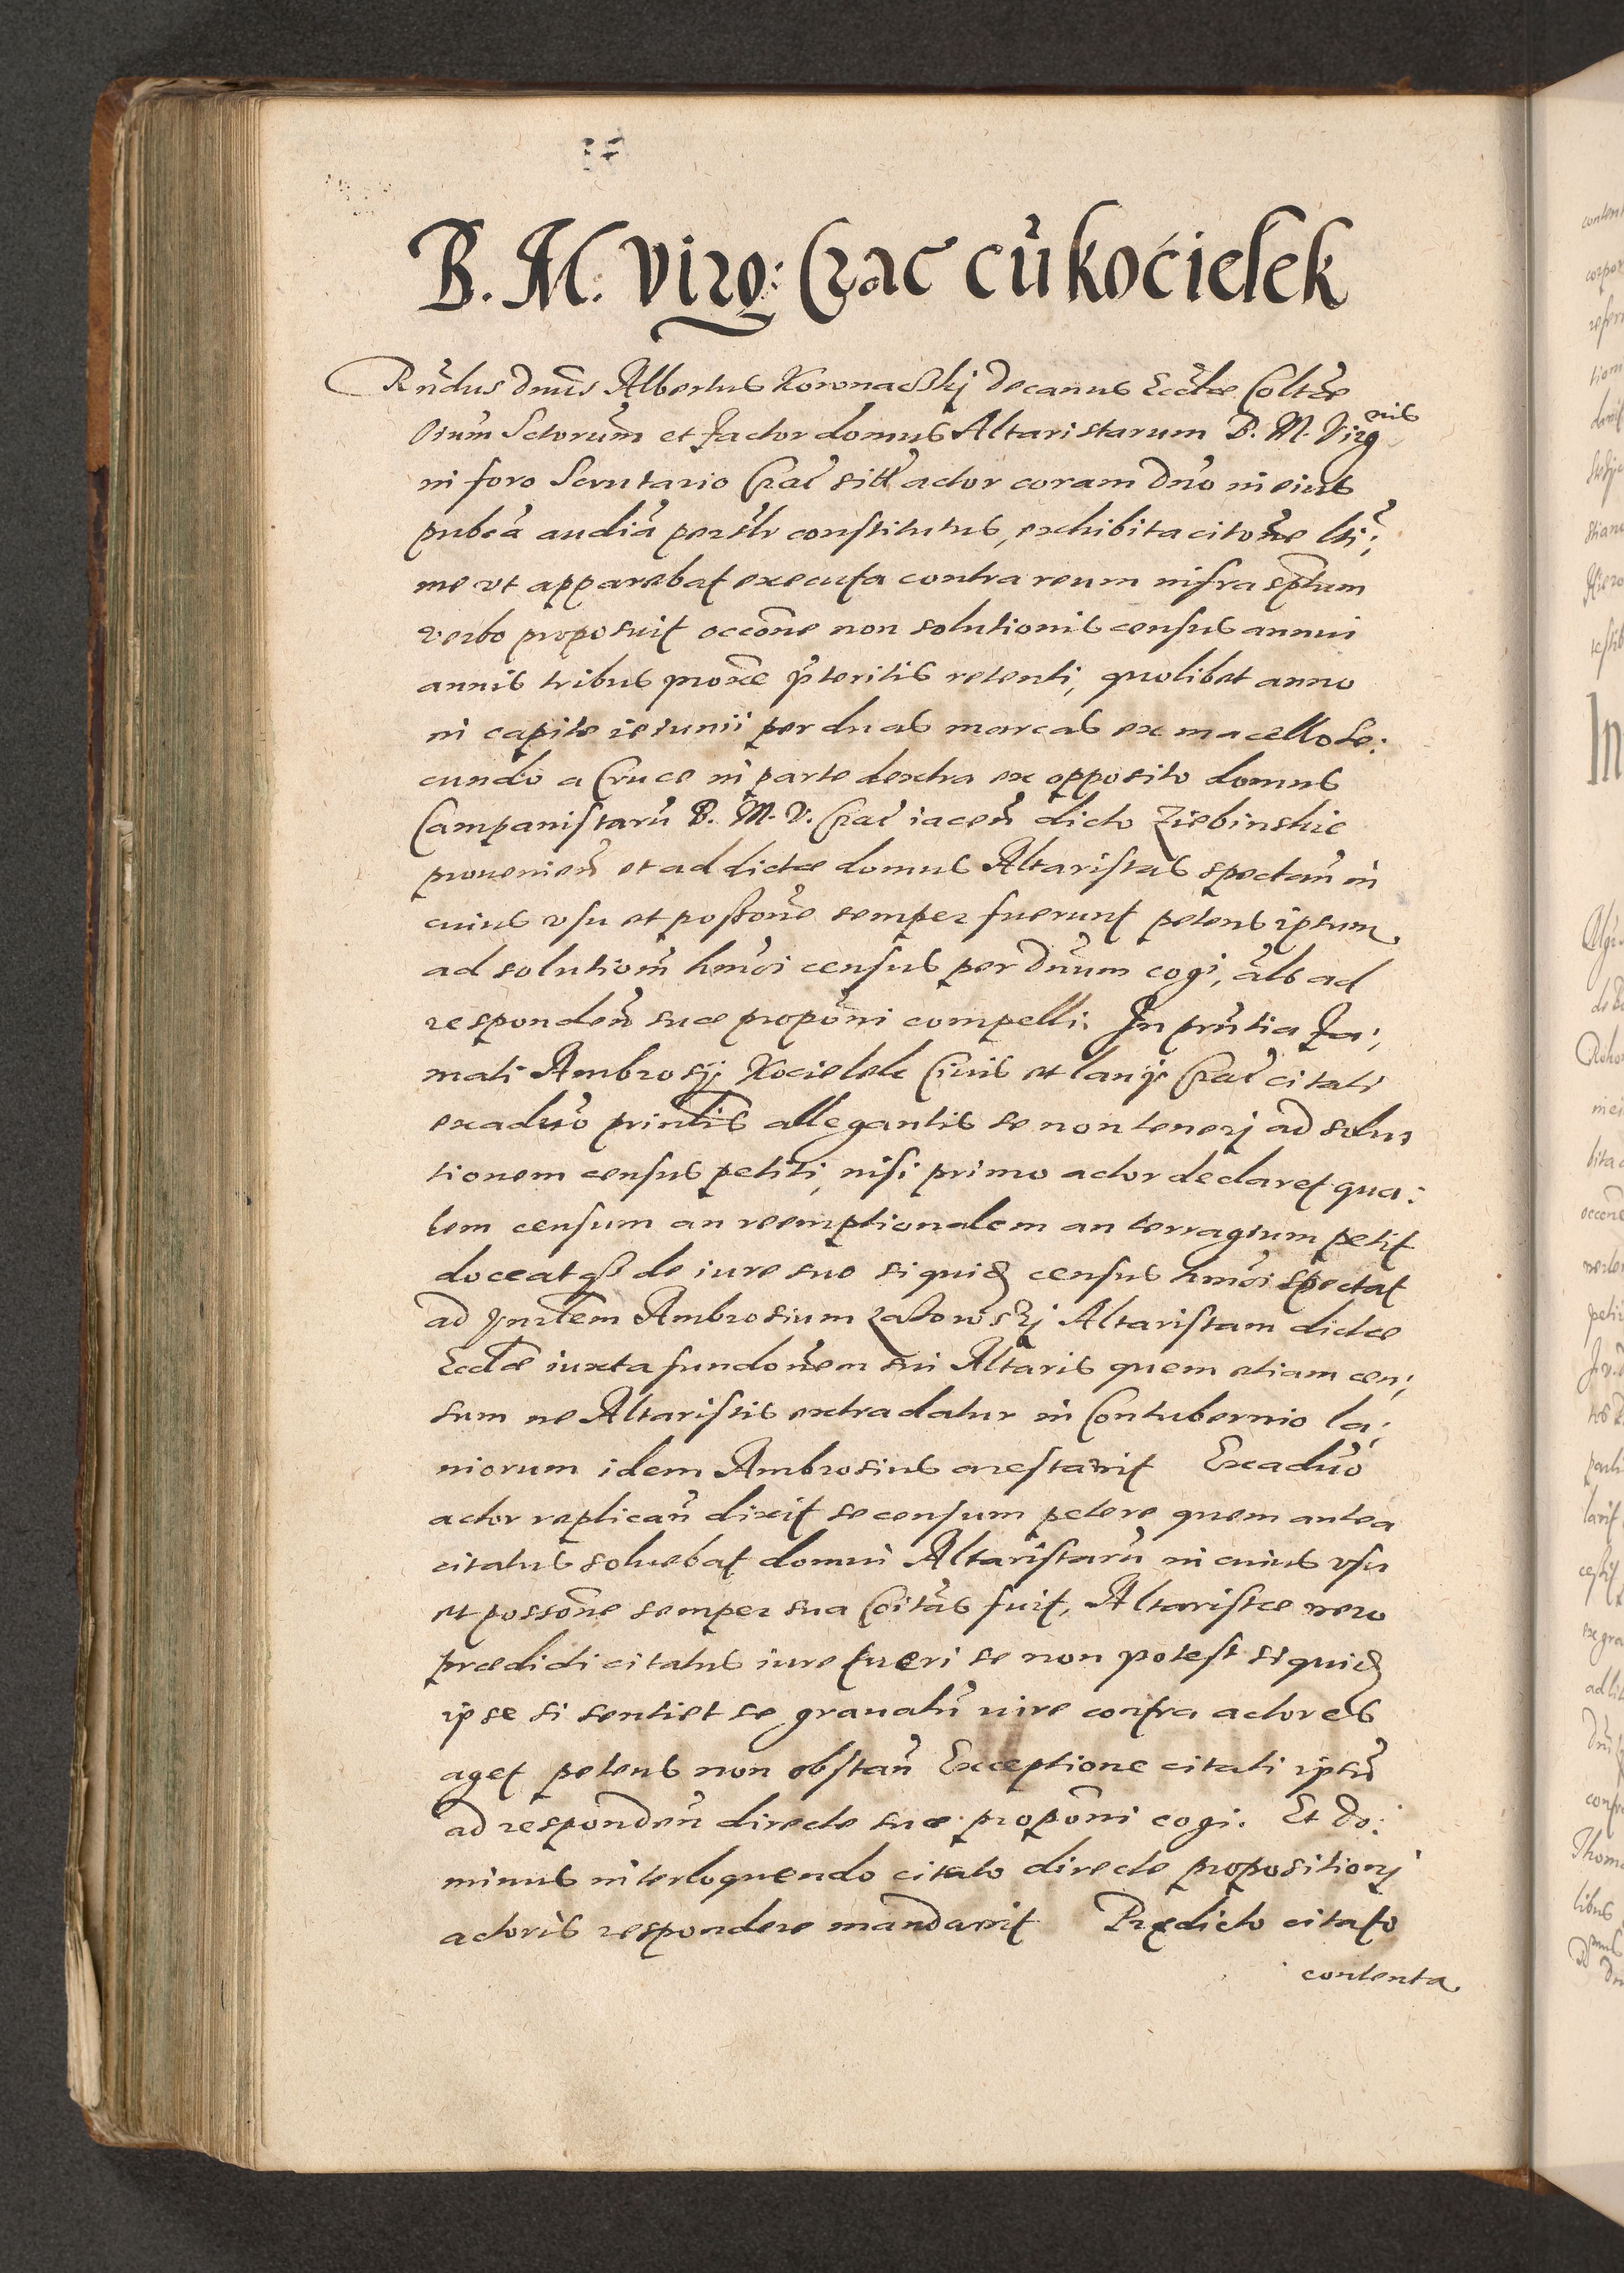 B. M. Virg: Crac̄ cū kocielek
Rn̄dus Dnūs Albertus Koronaczkij Decanus Ecclæ Coltæ
Oium Sctorum et factor domus Altaristarum B. M. Virgnis
in foro Scrutario Crac̄ sitt̄ actor coram Dnō in eius
pubcā audiā persltr constitutus, exhibita citone ltti;
me vt apparebat executa contra reum infra sptum
verbo proposuit occone non solutionis census annui
annis tribus proxe pteritis retenti, quolibet anno
in capite ieiunii per duas marcas ex macello se:
cundo a Cruce in parte dextra ex opposito domus
Campanistarū B. M. V. Crac̄ iaceñ dicto Ziebinskie
prouenieñ et ad dictæ domus Altaristas spectañ in
cuius vsu et possone semper fuerunt petens ipsum
ad solutiom̄ hmōi census per Dnūm cogi, als ad
respondeñ suæ propōni compelli. In pntia Fa:
mati Ambrosij Kocielek Ciuis et lanij Crac̄ citati
exaduō printis allegantis se non tenerj ad solu
tionem census petiti, nisi primo actor declaret qua:
lem censum an reemptionalem an terragium petit
doceatqz de iure suo siquid census hmōi spectat
ad Ambrosium Altaristam dictæ
Ecclæ iuxta fundonem sui Altaris quem etiam cen:
sum ne Altaristis extradatur in Contubernio la:
niorum idem Ambrosius arestauit Exaduō
actor replicañ dixit se censum petere quem antea
citatus soluebat domui Altaristarū in cuius vsu
et possone semper sua Coitas fuit, Altaristæ vero
prædicti citatus iure tueri se non potest siquid
ipse si sentiet se grauatū iure contra actores
aget petens non obstañ Exceptione citati ipsū
ad respondeñ directe suæ propōni cogi. Et Do:
minus interloquendo citato directe propositionj
actoris respondere mandauit Prædicto citato
contenta